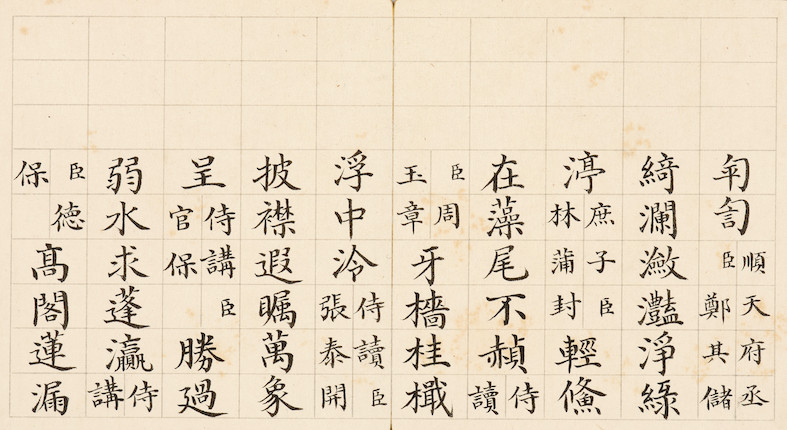 匉訇順天府丞臣鄭其儲
綺瀾瀲灩淨綠
渟庶子臣林蒲封輕鯈
在藻尾不赬侍讀
臣周玉章牙檣桂檝
浮中泠侍讀臣張泰開
披襟遐矚萬象
呈侍講臣官保勝過
弱水求蓬瀛侍講
臣德保髙閣蓮漏